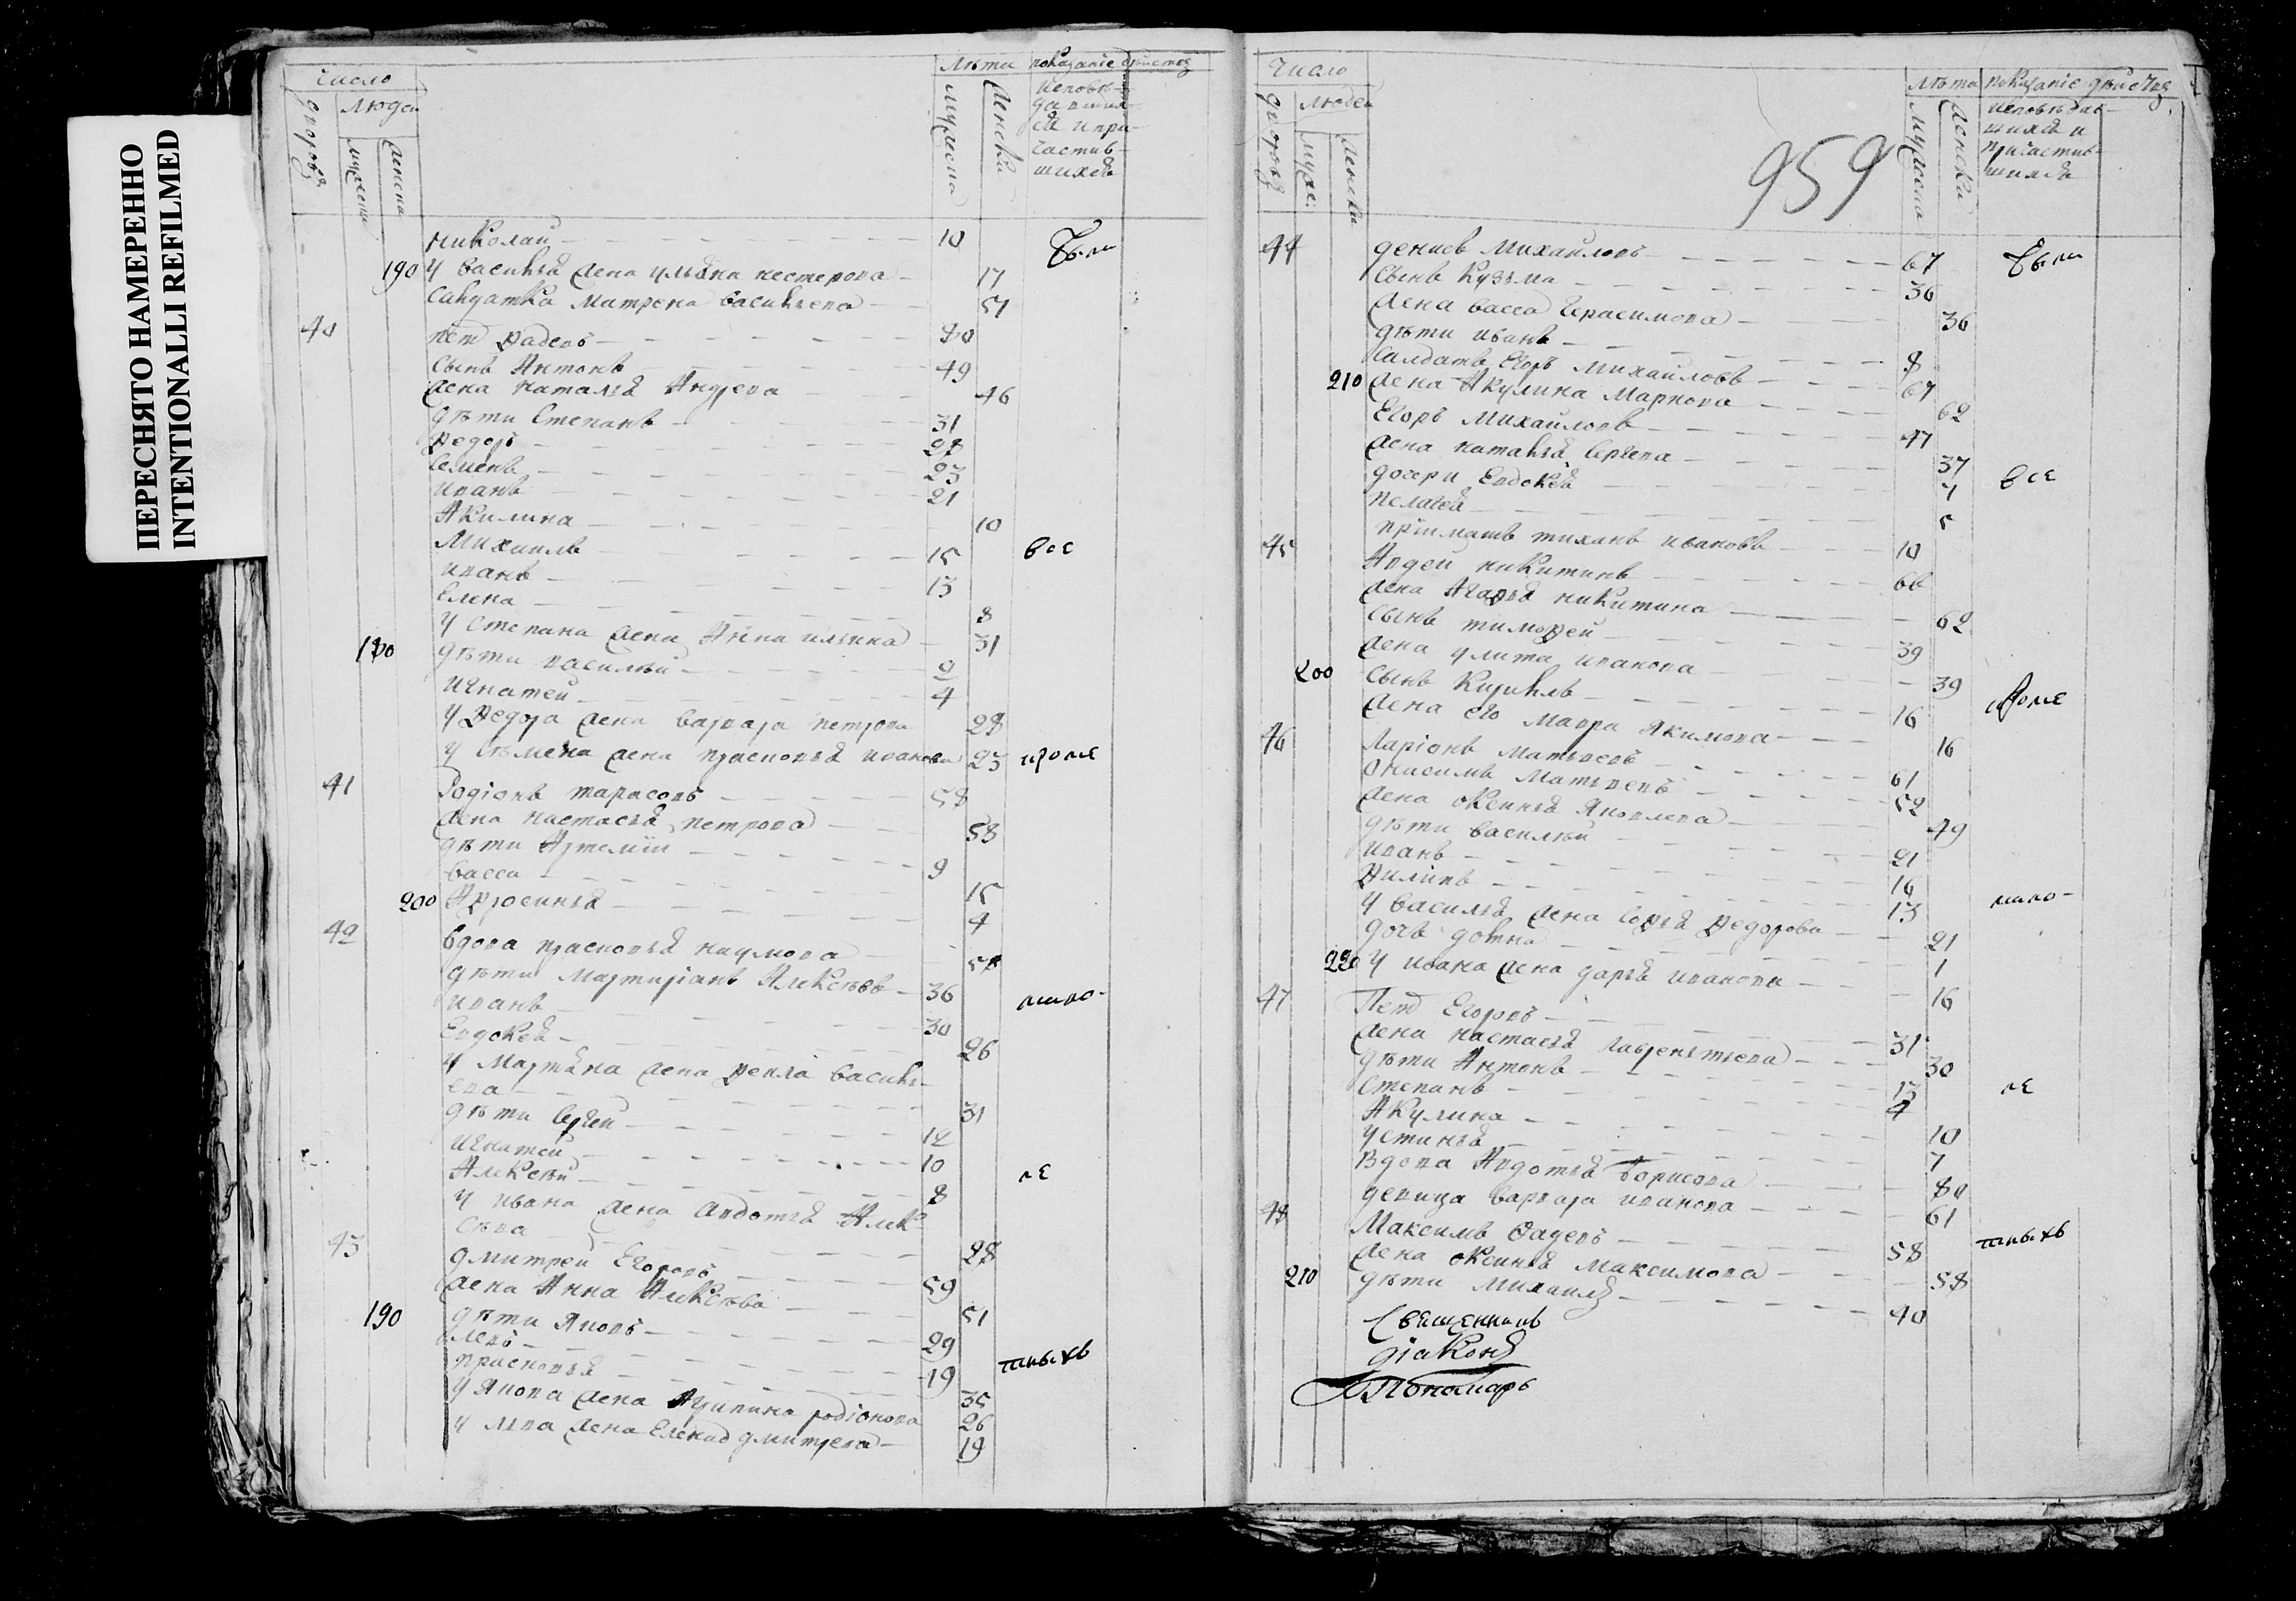 ПЕРЕСНЯТО НАМЕРЕННО
INTENTIONALLI REFILMED
Число
Лѣта показаніе дѣйства
дворовъ
людей
мужеска
женска
мужеска
женска
Исповѣ-
давших-
ся и при-
частив-
шихся
Николай 10 были
190 у Василья жена Ульяна Нестерова 17
салдатка Матрена Васильева 51
40 Петр Фадеевъ 80
сынъ Антонъ 49
жена Наталья Андрева 46
дѣти Степанъ 31
Федоръ 28
Семенъ 23
Иванъ 21
Акилина 10
Михаилъ 15 все
Иванъ 13
Елена 8
у Степана жена Анна Ильина 31
180 дѣти Василѣй 9
Игнатей 4
у Федора жена Варвара Петрова 28
у Сѣмена жена Прасковья Иванова 23 кроме
41 Родіонъ Тарасовъ 58
жена Настасья Петрова 58
дѣти Артемій 9
Васса 15
200 Афросинья 4
42 вдова Прасковья Наумова 58
дѣти Мартиріанъ Алексѣевъ 36
Иванъ 30 мало-
Евдокея 26
у Мартьяна жена Фекла Василь-
ева 31
дѣти Сергей 12
Игнатей 10
Алексѣй 8 ле
у Ивана жена Авдотья Алек-
сѣва 28
43 Дмитрей Егоровъ 59
жена Анна Алексѣва 51
190 дѣти Яковъ 29
Левъ 19
Прасковья 35 тныхъ
у Якова жена Агрипина Родіонова 26
у Льва жена Елена Дмитрева 19
Число
959
Лѣта показаніе дѣйства
дворовъ
людей
муже:
женска
мужеска
женска
Исповѣдав-
шихся и
причастив-
шихся
44 Денисъ Михайловъ 67 были
сынъ Кузьма 36
жена Васса Герасимова 36
дѣти Иванъ 8
салдатъ Егоръ Михайловъ 67
210 жена Акулина Маркова 62
Егоръ Михайловъ 47
жена Наталья Сергева 37
дочери Евдокея 7 все
Пелагея 5
пріимашъ Тиханъ Ивановъ 10
45 Авдей Никитинъ 66
жена Агафья Никитина 62
сынъ Тимофей 39
жена Улита Иванова 39
200 сынъ Кирилъ 16 кроме
жена его Мавра Якимова 16
46 Ларіонъ Матвеевъ 61
Онисимъ Матвеевъ 52
жена Оксинья Яковлева 49
дѣти Василѣй 21
Иванъ 16
Филипъ 13 мало-
у Василья жена Софья Федорова 21
дочь Домна 1
220 у Ивана жена Дарья Иванова 16
47 Петр Егоровъ 31
жена Настасья Лаврентьева 30
дѣти Антонъ 13 ле
Степанъ 4
Акулина 10
Устинья 7
вдова Авдотья Борисова 80
девица Варвара Иванова 61
48 Максимъ Фадеевъ 58 тныхъ
жена Оксинья Максимова 58
210 дѣти Михаилъ 40
Священникъ
діаконъ
Пономарь